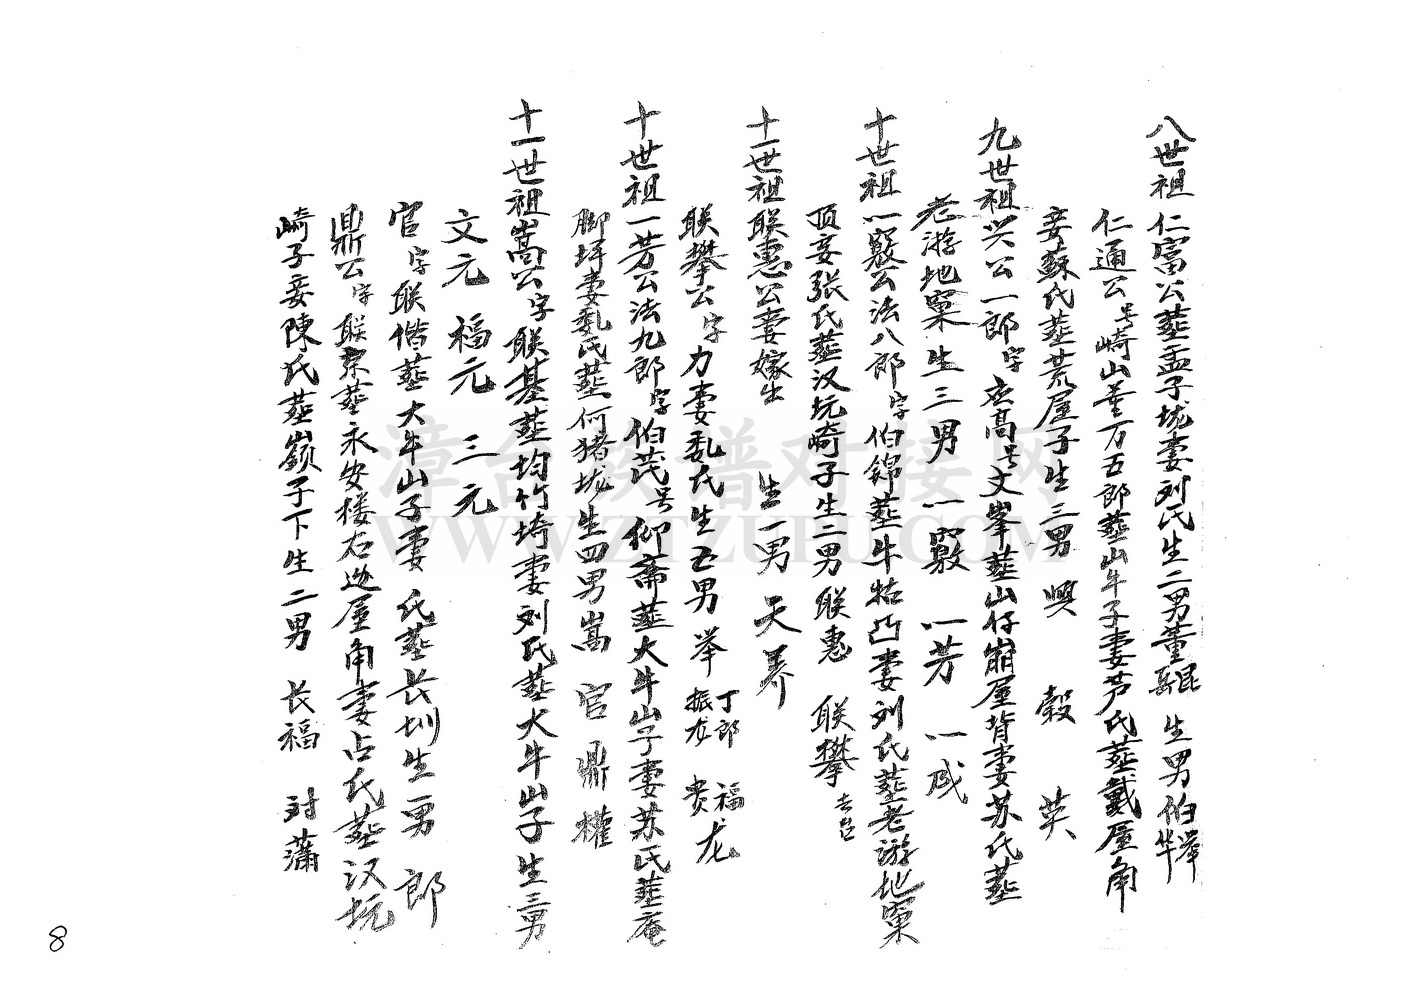 八世祖 仁富公葬孟子垅妻刘氏生二男董昆 董岳 生男伯举 伯华
仁通公号崎山董万五郎葬山牛子妻芦氏葬戴屋角
妾苏氏葬荒屋子生三男 兴 毅 英
九世祖兴公一郎字 高号文峯葬山仔崩屋背妻苏氏葬
老游地窠生三男 一窍 一芳 一成
十世祖一窍公法八郎字伯锦葬牛牯凸妻刘氏葬老游地窠
顶妾张氏葬汉坑崎子生二男联惠 联攀去台
十一世祖联惠公妻嫁出 生一男 天养
联攀公字力妻乱氏生五男 举 丁郎 振龙 福 贵 龙
十世祖一芳公法九郎字伯茂号仰斋葬大牛山子妻苏氏葬庵
脚坪妻乱氏葬何猪垅生四男嵩 官 鼎 權
十一世祖嵩公字联基葬均竹埼妻刘氏葬大牛山子生三男
文元 福元 三元
官字联偕葬大牛山子妻 氏葬长圳生一男 郎
鼎公字联 葬永安楼右边屋角妻占氏葬汉坑
崎子妾陳氏葬嶺子下生二男 长福 对蒲
8
漳台族谱对接网
WWW.ZTZUPU.COM